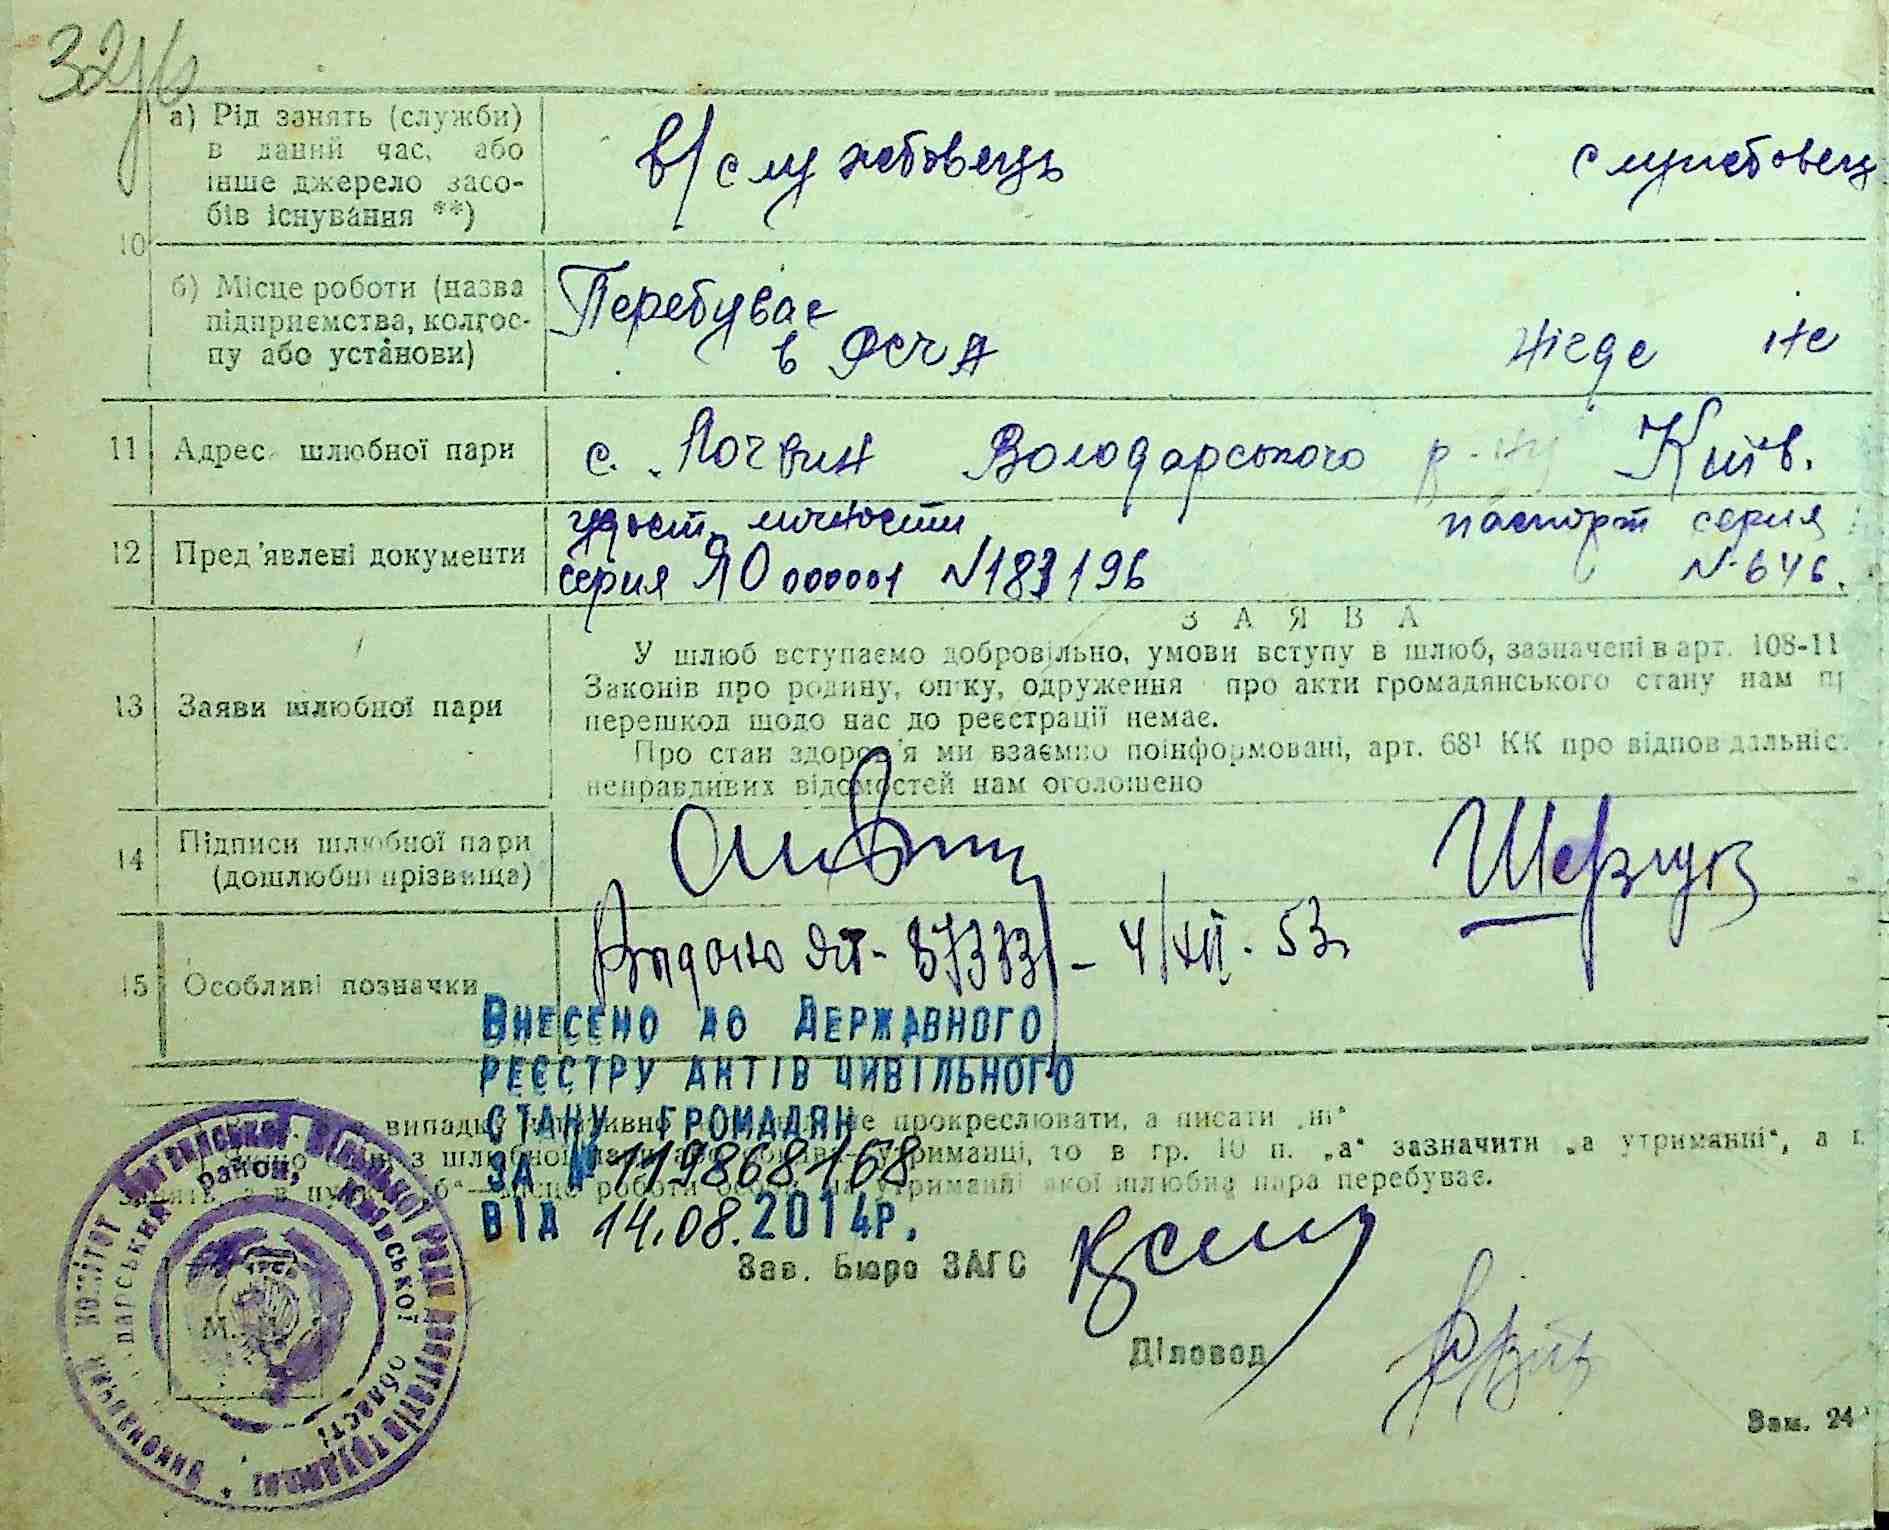 а) Рід занять (служби)
в даний час, або
інше джерело засо-
бів існування **)
в/службовець
службовець
10
б) Місце роботи (назва
підприємства, колгос-
пу або установи)
Перебуває
в
нігде не
11 Адрес шлюбної пари
с. Логвин Володарського р-ну Київ.
12 Пред'явлені документи
удост. личности
серия ЯО 000001 N 183196
паспорт серия
N-646.
13 Заяви шлюбної пари
ЗАЯВА
У шлюб вступаємо добровільно, умови вступу в шлюб, зазначені в арт. 108-11
Законів про родину, опіку, одруження про акти громадянського стану нам пр
перешкод щодо нас до реєстрації немає.
Про стан здоров'я ми взаємно поінформовані, арт. 68¹ КК про відповідальніс
неправдивих відомостей нам оголошено
14 Підписи шлюбної пари
(дошлюбні прізвища)
15 Особливі позначки
Видано ЯТ- - 4/XII. 53
ВНЕСЕНО ДО ДЕРЖАВНОГО
РЕЄСТРУ АКТІВ ЦИВІЛЬНОГО
СТАНУ ГРОМАДЯН
ЗА № 119868168
ВІД 14.08.2014р.
випадку не прокреслювати, а писати „ні“
з шлюбної пари утриманці, то в гр. 10 п. „а“ зазначити „а утриманні“, а
б“—місце роботи на утриманні якої шлюбна пара перебуває.
Зав. Бюро ЗАГС
Діловод
М.
район, Київської області
Виконавчий комітет Ради депутатів трудящих
Зам. 24